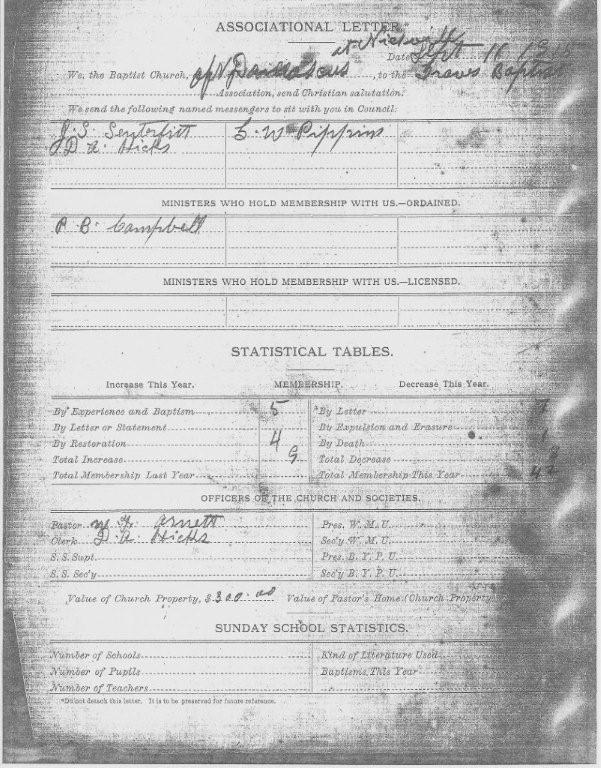 ASSOCIATIONAL LETTER.
at
Date Sept 11 1915
We, the Baptist Church, of N Damascus, to the Graves Baptist
Association, send Christian salutation.
We send the following named messengers to sit with you in Council:
J. S. Senterfitt L. W Pippins
D A. Hicks
MINISTERS WHO HOLD MEMBERSHIP WITH US.—ORDAINED.
P. B. Campbell
MINISTERS WHO HOLD MEMBERSHIP WITH US.—LICENSED.
STATISTICAL TABLES.
Increase This Year. MEMBERSHIP. Decrease This Year.
By Experience and Baptism 5 *By Letter 7
By Letter or Statement By Expulsion and Erasure
By Restoration 4 By Death 1
Total Increase 9 Total Decrease 8
Total Membership Last Year Total Membership This Year 42
OFFICERS OF THE CHURCH AND SOCIETIES.
Pastor Arnett Pres. W. M. U.
Clerk D. A. Hicks Sec'y W. M. U.
S. S. Supt. Pres. B. Y. P. U.
S. S. Sec'y Sec'y B. Y. P. U.
Value of Church Property, $300.00 Value of Pastor's Home (Church Property
SUNDAY SCHOOL STATISTICS.
Number of Schools Kind of Literature Used
Number of Pupils Baptisms This Year
Number of Teachers
*Do not detach this letter. It is to be preserved for future reference.